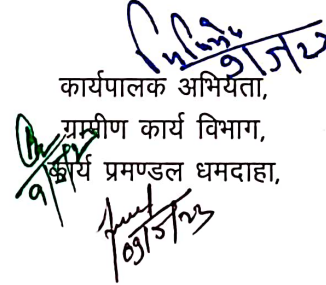 9/5/23
कार्यपालक अभियंता,
ग्रामीण कार्य विभाग,
कार्य प्रमण्डल धमदाहा,
09/5/23